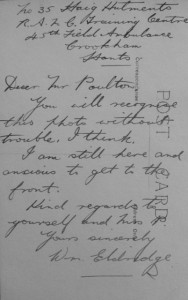 No 35 Haig Hutments
R.A.M.C Training Centre
45th Field Ambulance
Crookham
Hants
Dear Mr Poulton
You will recognise
this photo without
trouble, I think.
I am still here and
anxious to get to the
front.
Kind regards to
yourself and Mrs P.
Yours sincerely
Wm. Eldridge
POST CARD